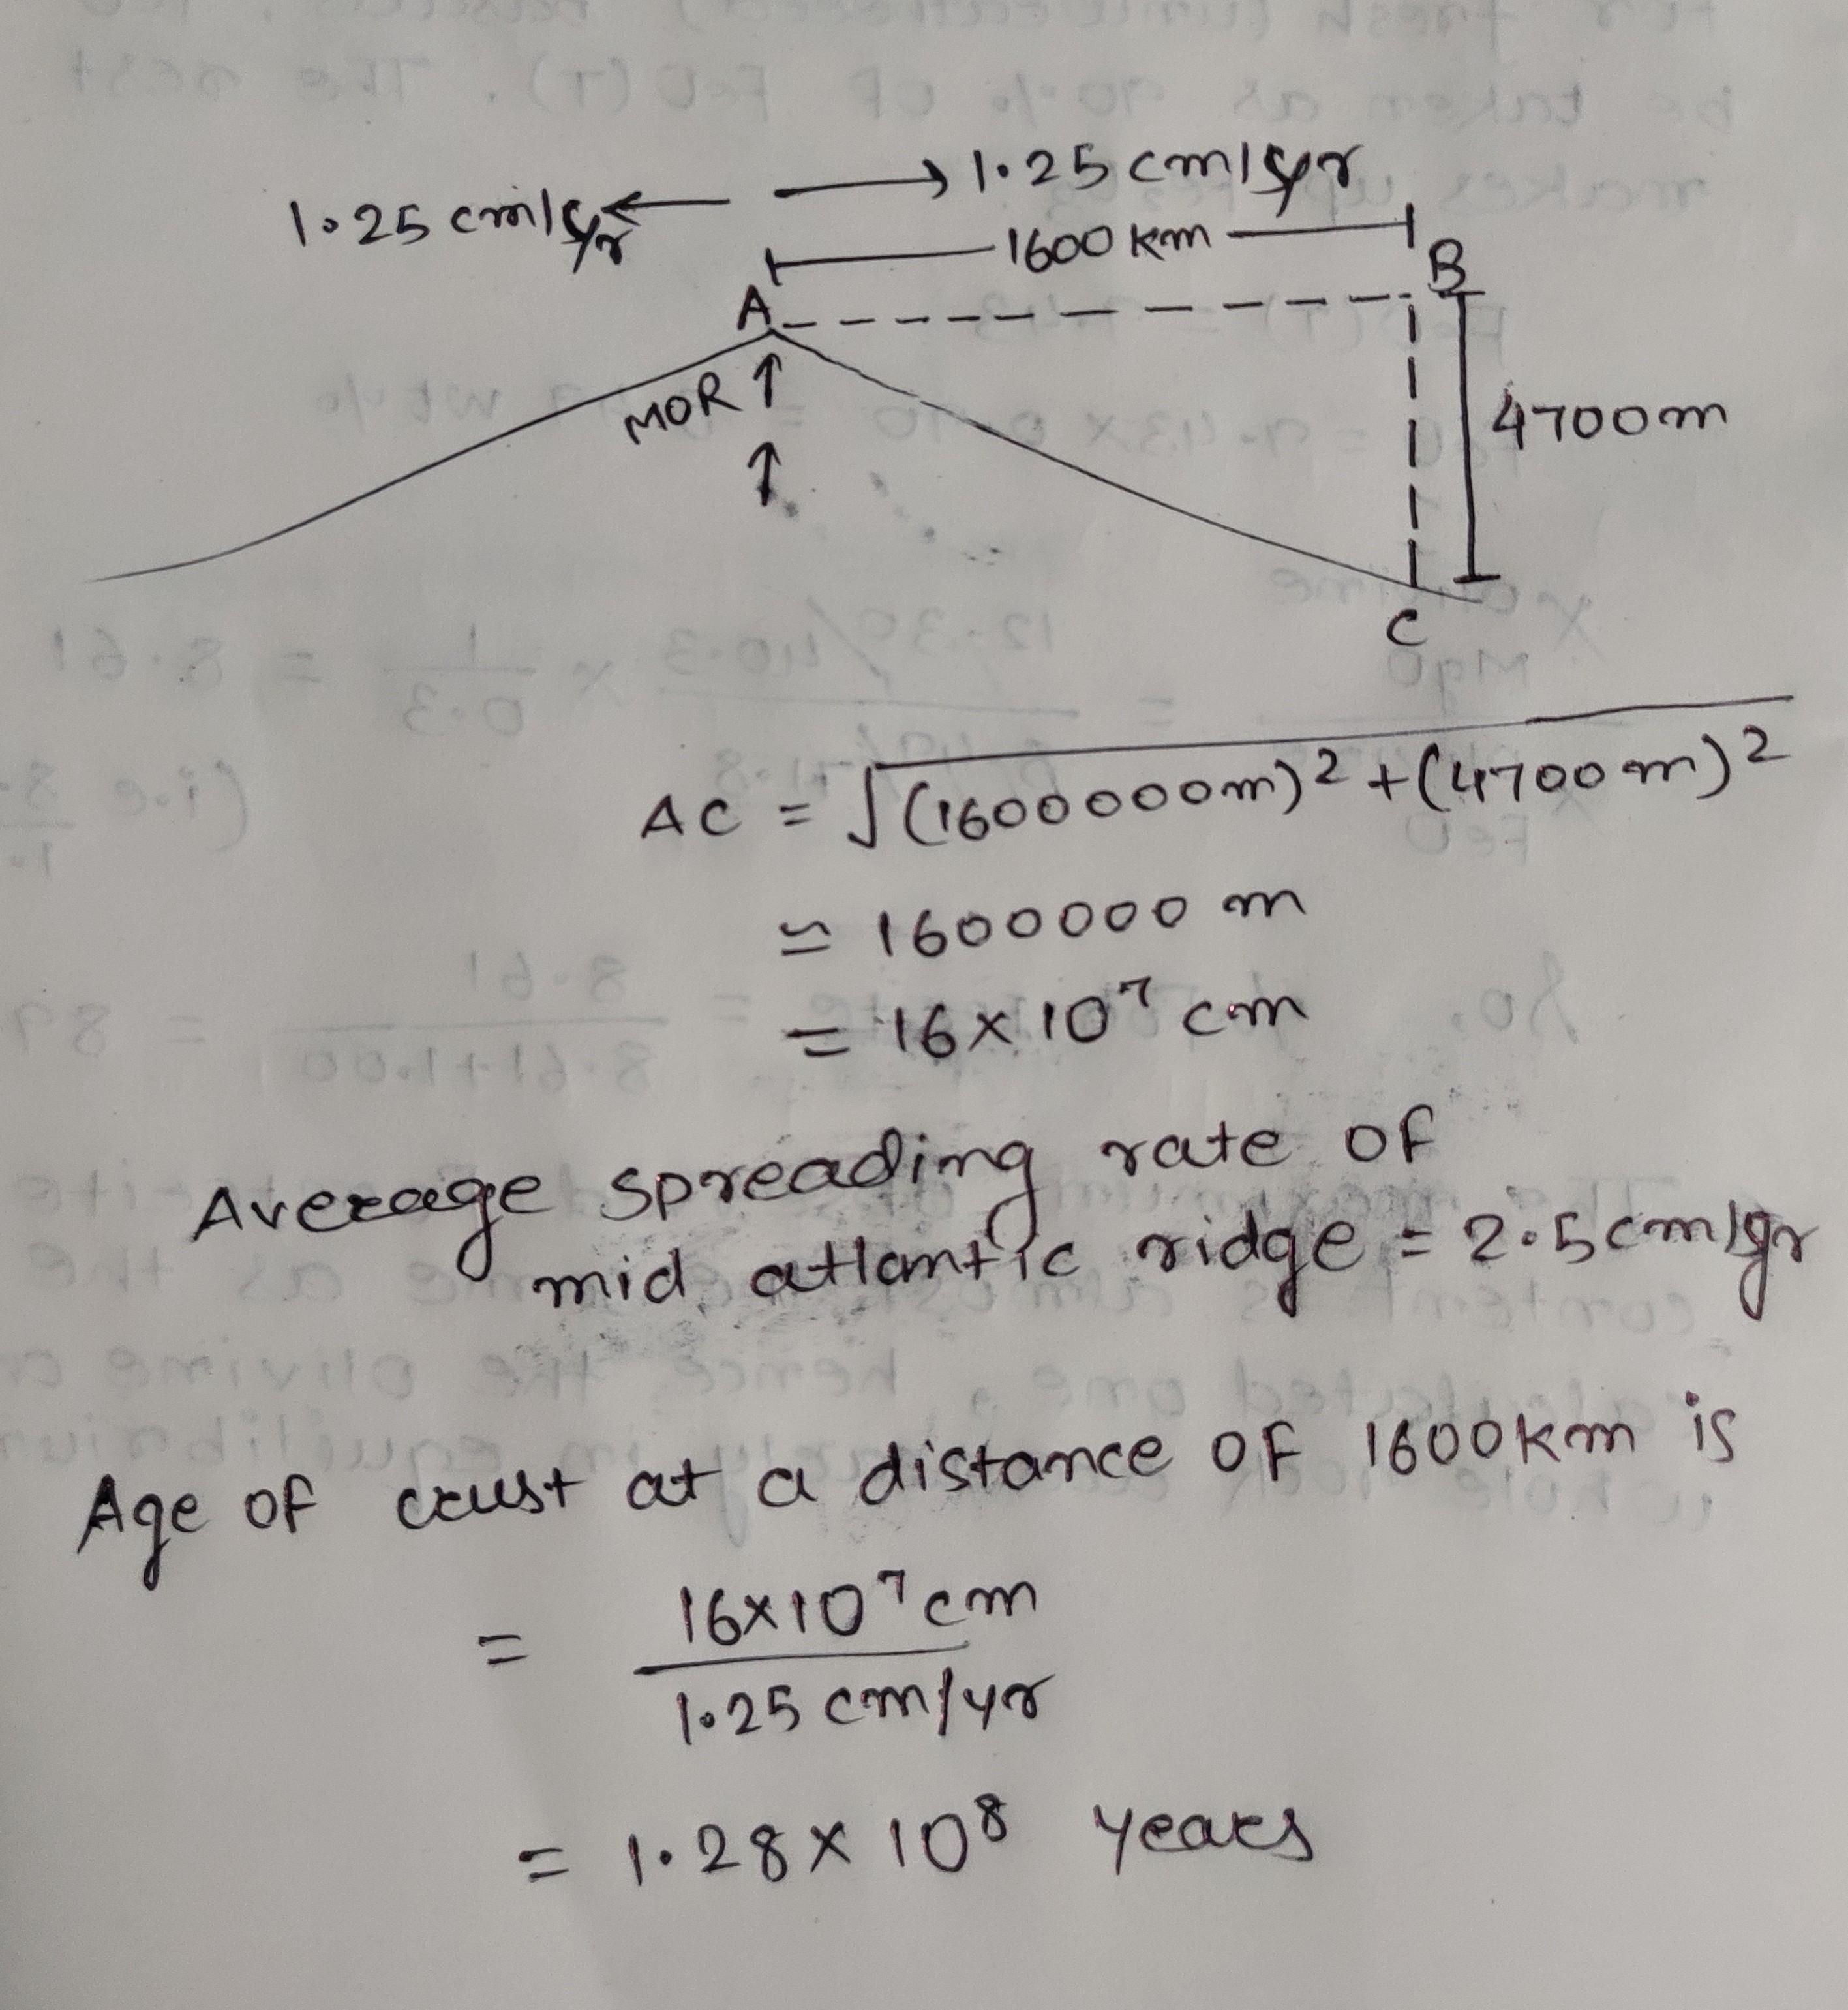 1.25 cm/yr ← → 1.25 cm/yr
1600 km
A B
MOR ↑ 4700 m
↑
C
AC = √(1600000m)² + (4700 m)²
≃ 1600000 m
= 16 × 10⁷ cm
Average spreading rate of
mid atlantic ridge = 2.5 cm/yr
Age of crust at a distance of 1600 km is
= 16×10⁷ cm
1.25 cm/yr
= 1.28 × 10⁸ years